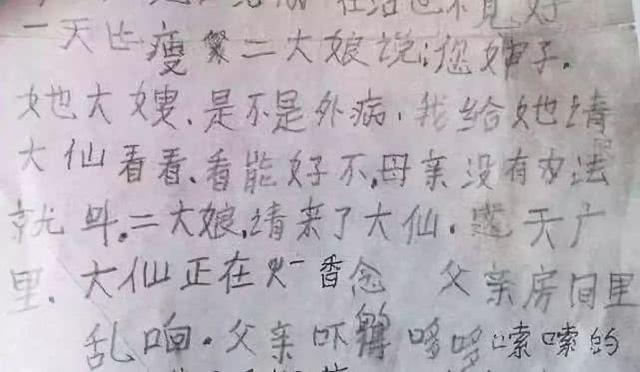 也不见好
一天比瘦 二大娘说:您婶子.
她大嫂.是不是外病,我给她请
大仙看看.看能好不,母亲没有办法
就叫.二大娘,请来了大仙. 天广
里.大仙正在 香念 父亲房间里
乱响.父亲吓的 哆哆嗦嗦的